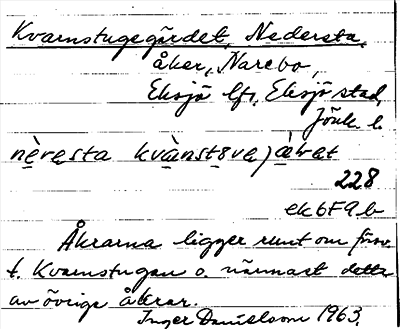 Kvarnstugegärdet, Nedersta,
åker, Narebo,
Eksjö lfs, Eksjö stad,
Jönk. l.
nèresta kvànstɵvejæ̀ret
228
ek6F9b
Åkrarna ligger runt om förv
t. Kvarnstugan o. närmast detta
av övriga åkrar.
Inger Danielsson 1963.